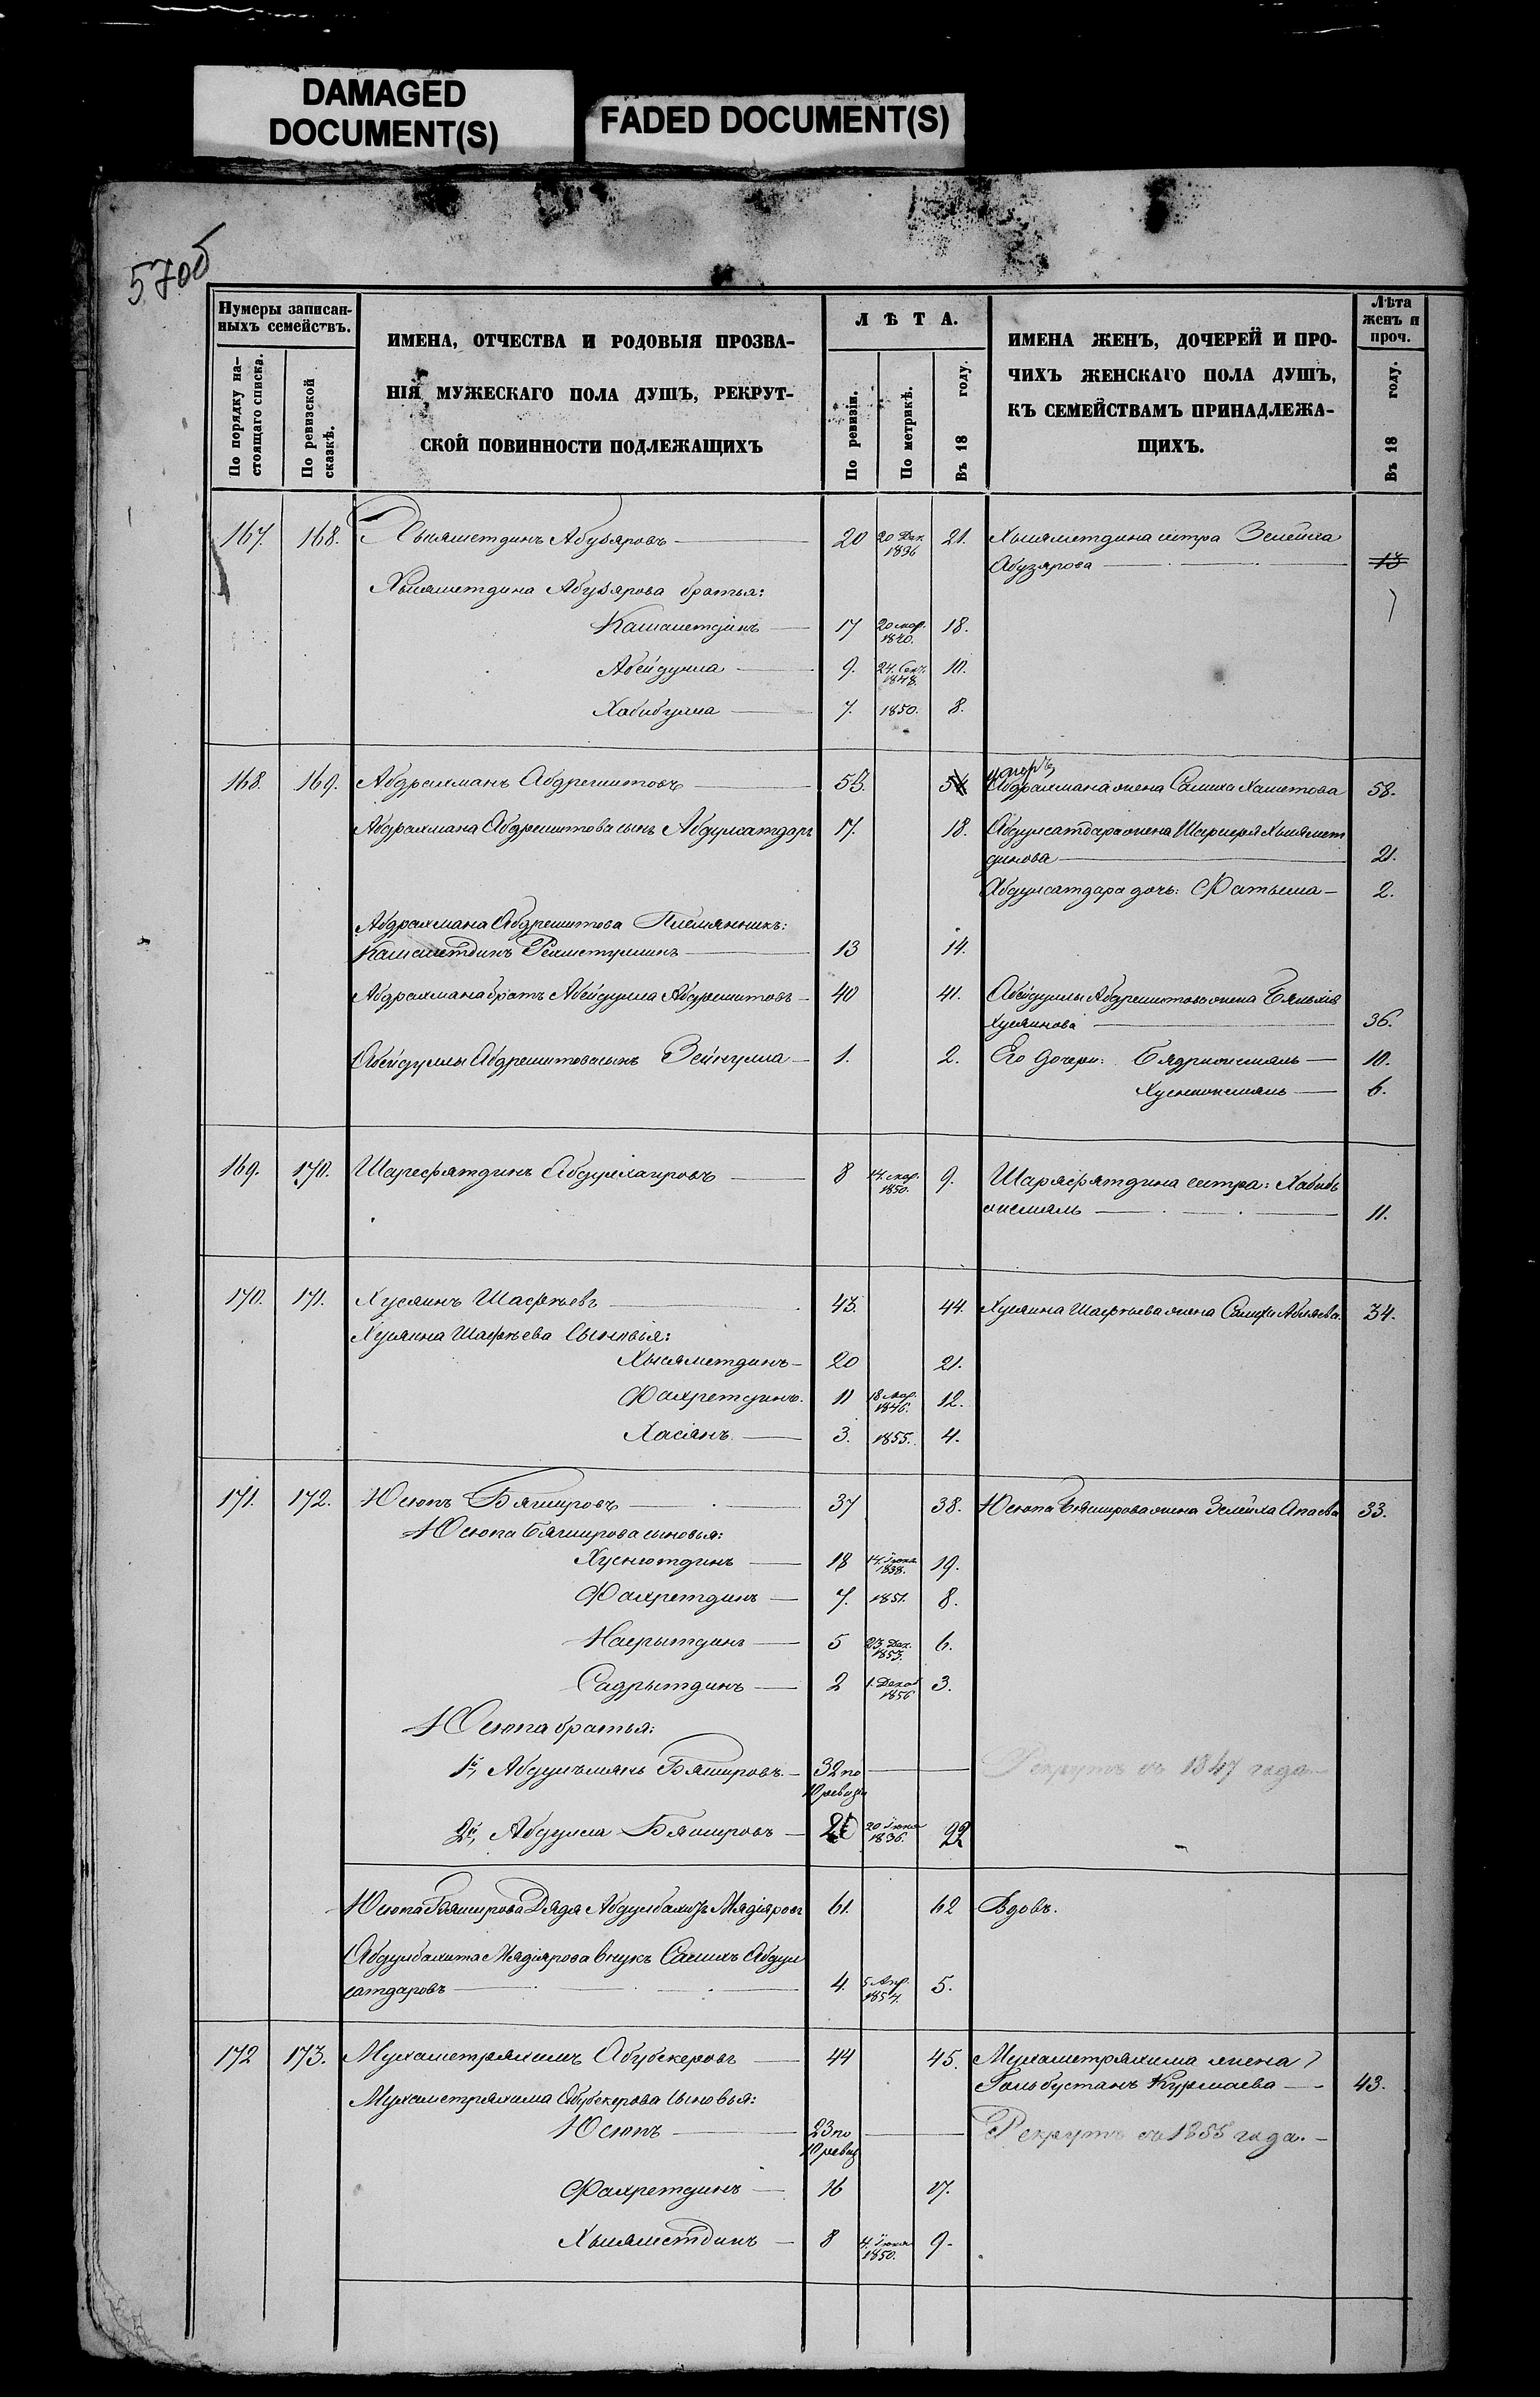 DAMAGED
DOCUMENT(S)
FADED DOCUMENT(S)
570об
Нумеры записан-
ныхъ семействъ.
По порядку на-
стоящаго списка.
По ревизской
сказкѣ.
ИМЕНА, ОТЧЕСТВА И РОДОВЫЯ ПРОЗВА-
НІЯ МУЖЕСКАГО ПОЛА ДУШЪ, РЕКРУТ-
СКОЙ ПОВИННОСТИ ПОДЛЕЖАЩИХЪ
ЛѢТА.
По ревизіи.
По метрикѣ.
Въ 18 году.
ИМЕНА ЖЕНЪ, ДОЧЕРЕЙ И ПРО-
ЧИХЪ ЖЕНСКАГО ПОЛА ДУШЪ,
КЪ СЕМЕЙСТВАМЪ ПРИНАДЛЕЖА-
ЩИХЪ.
Лѣта
женъ и
проч.
Въ 18 году.
167. 168. Хысяметдинъ Абузяровъ 20 20 Дек. 1836 21. Хысяметдина сестра Зелейха
Абузярова 13
Хысяметдина Абузярова братья:
Камалетдинъ 17 20 мар. 1840. 18.
Абейдулла 9. 24. Сент. 1848. 10.
Хабибулла 7. 1850. 8.
168. 169. Абдрахманъ Абдрешитовъ 53. 54 умеръ
Абдрахмана жена Салиха Хаметова 58.
Абдрахмана Абдрешитова сынъ Абдулсатдаръ 17. 18. Абдулсатдара жена Хысямет
динова 21.
Абдулсатдара дочь: Фатыма 2.
Абдрахмана Абдрешитова Племянникъ:
Камалетдинъ Рахметуллинъ 13 14.
Абдрахмана братъ Абейдулла Абдрешитовъ 40 41. Абейдуллы Абдрешитова жена
Хусяинова 36.
Абейдуллы Абдрешитова сынъ Зейнулла 1. 2. Его дочери: Бядрижемаль 10.
Хуснижемаль 6.
169. 170. Шарефятдинъ Абдулхаировъ 8 14. мар. 1850. 9. Шаряфятдина сестра: Хабибъ
жемяль 11.
170. 171. Хусяинъ Шафѣевъ 43. 44. Хусяина Шафѣева жена Салиха Абляева 34.
Хусяина Шафѣева Сыновья:
Хысяметдинъ 20 21.
Фахретдинъ. 11 18 Мар. 1846. 12.
Хасянъ 3. 1855. 4.
171. 172. Юсюпъ Бяшировъ 37 38. Юсюпа Бяширова жена Зелейха Апаева 33.
Юсюпа Бяширова сыновья:
Хуснютдинъ 18 14. Іюня 1838. 19.
Фахретдинъ 7. 1851. 8.
Насрытдинъ 5 23 Дек. 1853. 6.
Садрытдинъ 2 1. Декаб 1856 3.
Юсюпа братья:
1й, Бяшировъ 32 по 10 ревизіи Рекрутъ съ 1847 года
2й, Абдулла Бяшировъ 20 20 Іюня 1836. 22
Юсюпа Бяширова Дядя Мядіяровъ 61. 62 Вдовъ.
Мядіярова внукъ Салихъ Абдул
сатдаровъ 4. 5 Апр. 1854. 5.
172 173. Мухаметряхимъ Абубекеровъ 44 45. Мухаметряхима жена
Гольбустанъ Курмаева 43.
Мухаметряхима Абубекерова Сыновья:
Юсюпъ 23 по 10 ревиз Рекрутъ съ 1855 года.
Фахретдинъ 16 17.
Хысяметдинъ 8 4. Іюня 1850. 9.